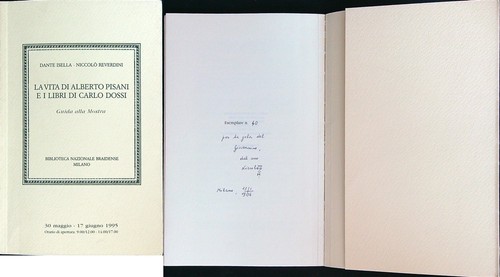 DANTE ISELLA - NICCOLÒ REVERDINI
LA VITA DI ALBERTO PISANI
E I LIBRI DI CARLO DOSSI
Guida alla Mostra
BIBLIOTECA NAZIONALE BRAIDENSE
MILANO
30 maggio - 17 giugno 1995
Orario di apertura 9.00/12.00 - 14.00/17.00
Esemplare n. 60
per la gola del
del suo
Milano